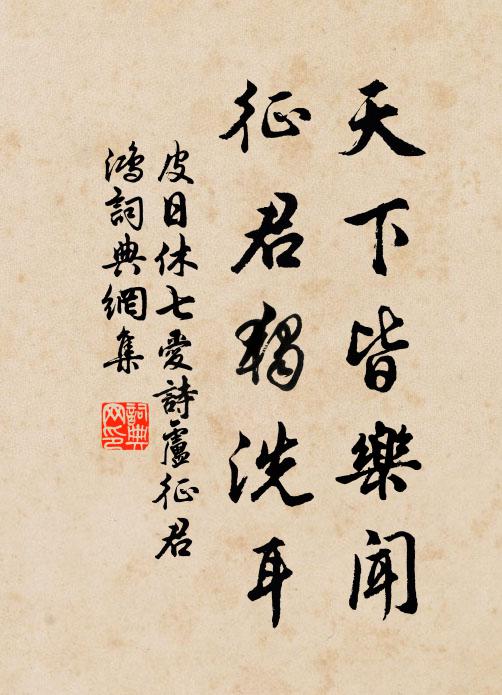 天下皆樂聞
征君獨洗耳
皮日休七愛詩盧征君
鴻詞典網集
詞典网印